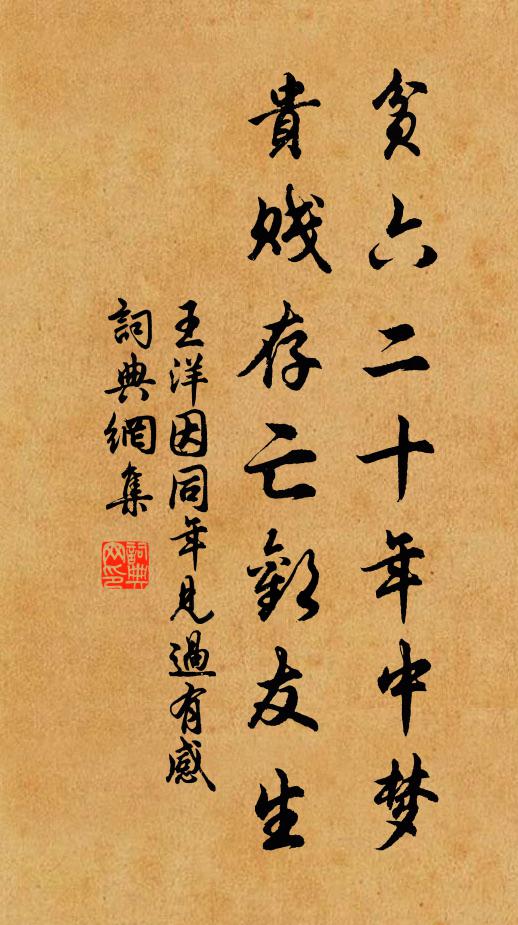 貧六二十年中梦
貴賤存亡歎友生
王洋因同年見過有感
詞典網集
詞典網印